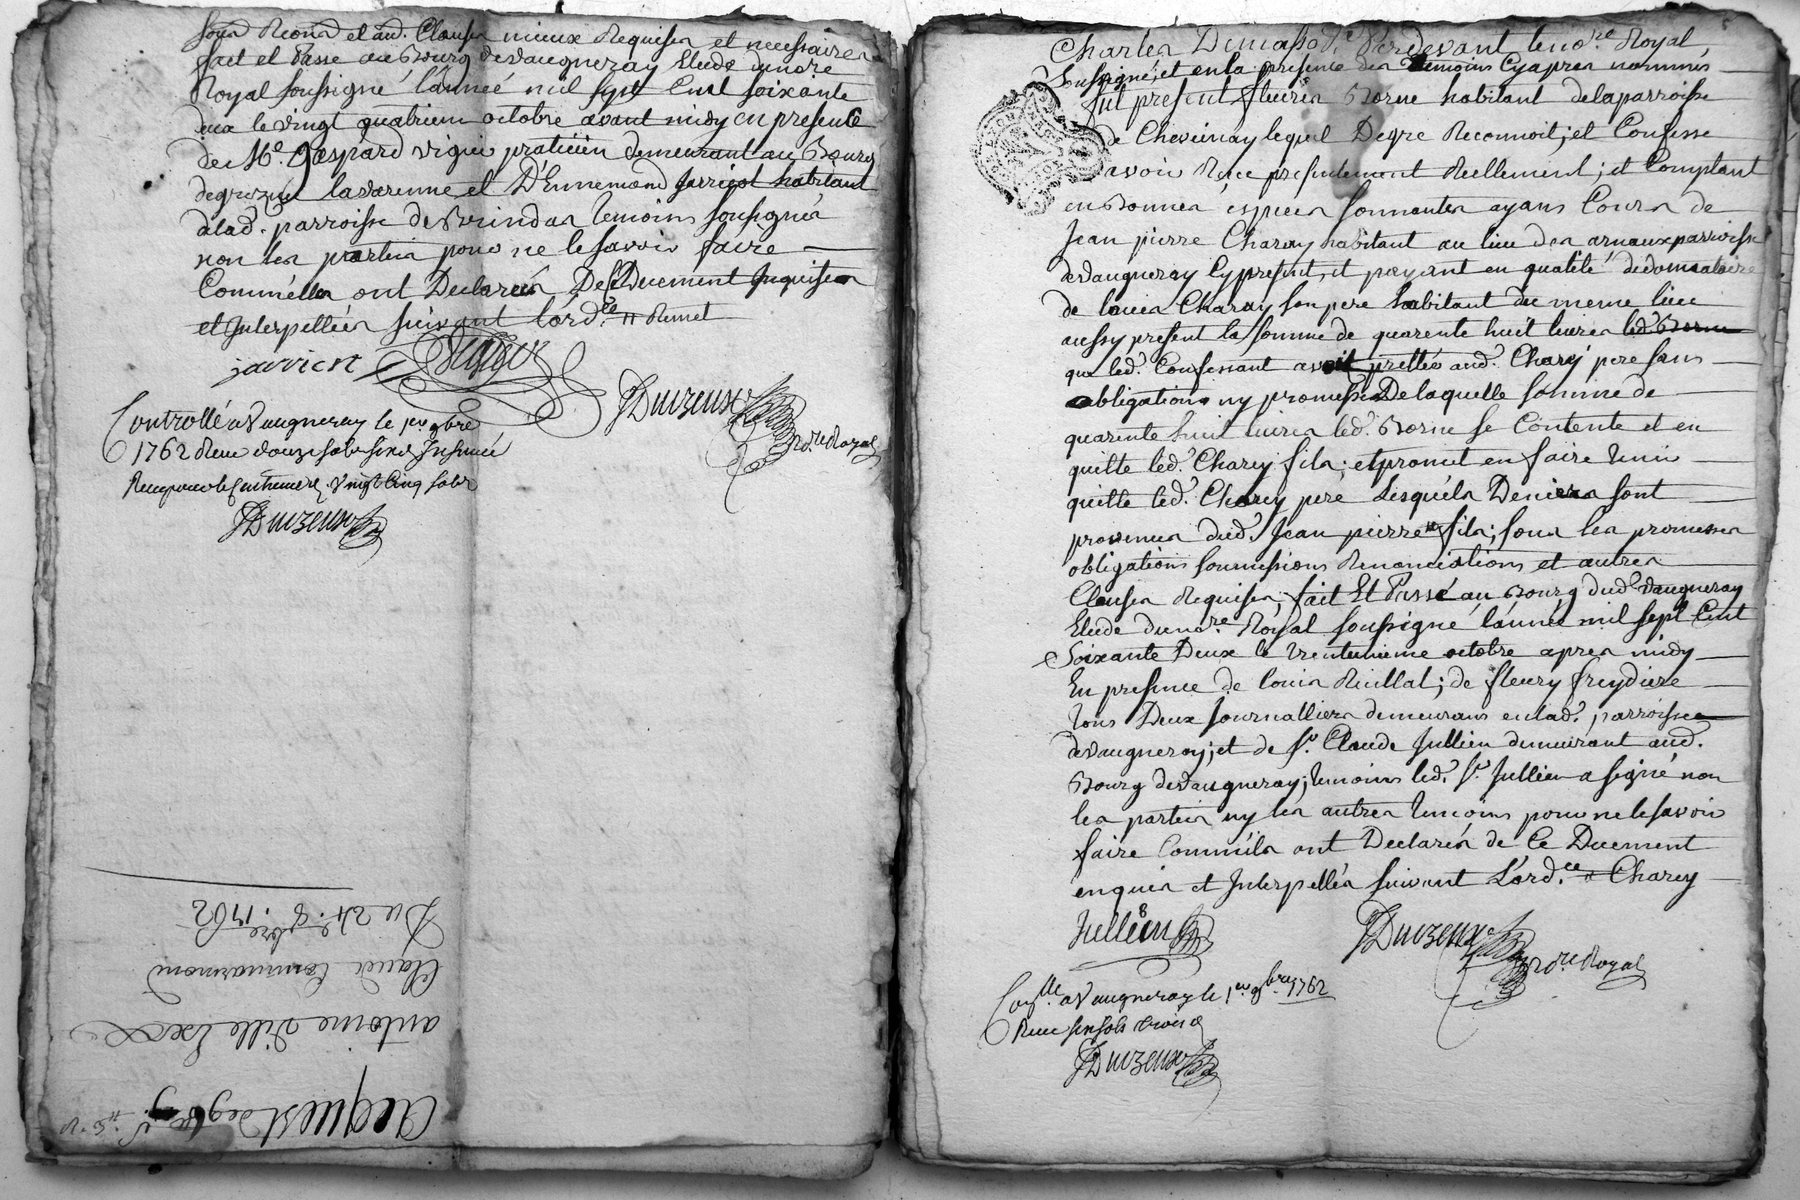 sous Renon et au.t Clauses mieux Requises et necessaires
fait et Passé au Bourg de vaugneray Etude dunore
Royal soussigné l'année mil sept Cent soixante
deux le vingt quatrieme octobre avant midy en presence
de M.e Gaspard vigier praticien demeurant au Bourg
de grezieu lavarenne et D'Ennemond Jarricot habitant
dela d. parroisse de Brindas temoins soussignés
non les parties pour ne le savoir faire
Comm'elles ont Declareés De ce Duement Inquises
et Interpelleés suivant lord.ce Remet
jarricot
Duizeux
No.re Royal
Controllé a Vaugneray le 1er 9bre
1762 Receu douze sols six d. Insinué
Receu pour le Centieme d. vingt Cinq sols
Duizeux
acquest de 96 ₶
antoine Ville
Claude Commarmond
Du 24. 8.bre 1762
Charles Perdevant le no.re Royal
Soussigné, et en la presence des temoins Cyapres nommés
fut present fleury Borne habitant de la parroisse
de Chevinay lequel De gre Reconnoit, et Confesse
avoir Receu presentement Reellement, et Comptant
en Bonnes especes sonnantes ayans Cours de
Jean pierre Charey habitant au lieu des arnaux parroisse
de Vaugneray Cy present, et payant en qualité de donnataire
de louis Charey son pere habitant du meme lieu
aussy present la somme de quarente huit livres led. Borne
que led. Confessant avoit prettés aud. Charey pere sans
obligations ny promesse De laquelle somme de
quarente huit livres led. Borne se Contente et en
quitte led. Charey fils; et promet en faire tenir
quitte led. Charey pere Lesquels Deniers sont
provenus dud. Jean pierre fils; sous les promesses
obligations soumissions Renonciations et autres
Clauses Requises, fait Et Passé au Bourg dud. Vaugneray
Etude du no.re Royal soussigné l'année mil sept Cent
Soixante Deux le trentunieme octobre apres midy
En presence de louis Reillat; de fleury freydiere
tous Deux Journalliers demeurans en lad. parroisse
de Vaugneray; et de S.r Claude Jullien demeurant aud.
Bourg de Vaugneray; temoins led. S.r Jullien a signé non
les parties ny les autres temoins pour ne le savoir
faire Comm'ils ont Declarés de Ce Duement
enquis et Interpellés suivant L'ord.ce Charey
Jullien
Duizeux
No.re Royal
Con.lle a Vaugneray le 1er 9bre 1762
Receu six sols trois d.
Duizeux